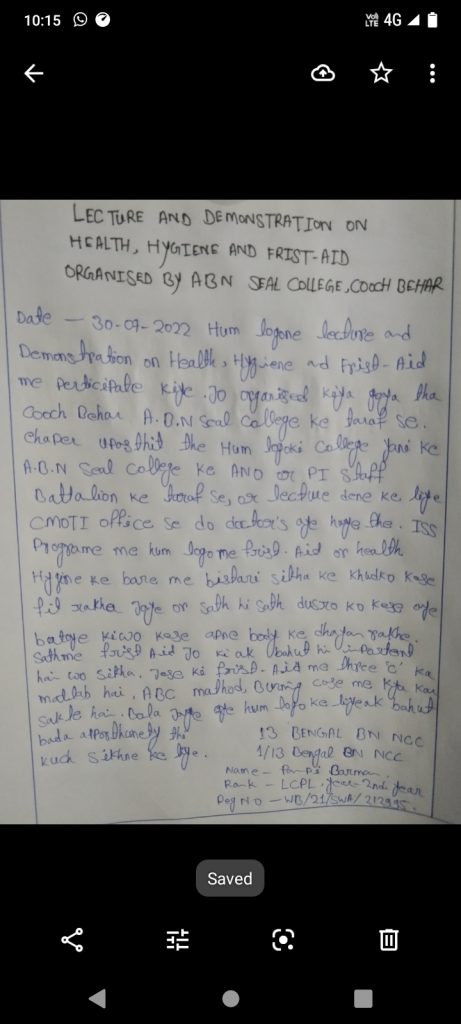 10:15
Vol) LTE 4G
LECTURE AND DEMONSTRATION ON
HEALTH, HYGIENE AND FRIST-AID
ORGANISED BY ABN SEAL COLLEGE, COOCH BEHAR
Date - 30-07-2022 Hum logone lecture and
Demonstration on Health, Hygiene and Frist-Aid
me perticipate kiye. Jo organised kiya gaya tha
Cooch Behar A.B.N Seal College ke taraf se.
the Hum logoki College yani ke
A.B.N Seal College ke ANO or PI Staff
Battalion ke taraf se, or lecture dene ke liye
CMOTI office se do doctor's aye huye the. ISS
Programe me hum logo me frist-Aid or health
Hygine ke bare me bistari sikha ke khudko kase
fit rakha Jaye or sath hi sath dusro ko kase
bataye ki wo kase apne body ke dhayan rakhe.
Sathme frist Aid Jo ki ak bahut hi
hai wo sikha. Jase ki frist-Aid me three 'c' ka
matlab hai, ABC mathod, Burning case me kya kar
sakte hai. Bala Jaye hum logo ke liye ak bahut
bada the
kuch sikhne ke liye.
13 BENGAL BN NCC
1/13 Bengal BN NCC
Name - Barman
Rank - LCPL, year-2nd year
Reg NO - WB/21/SWA/212995.
Saved